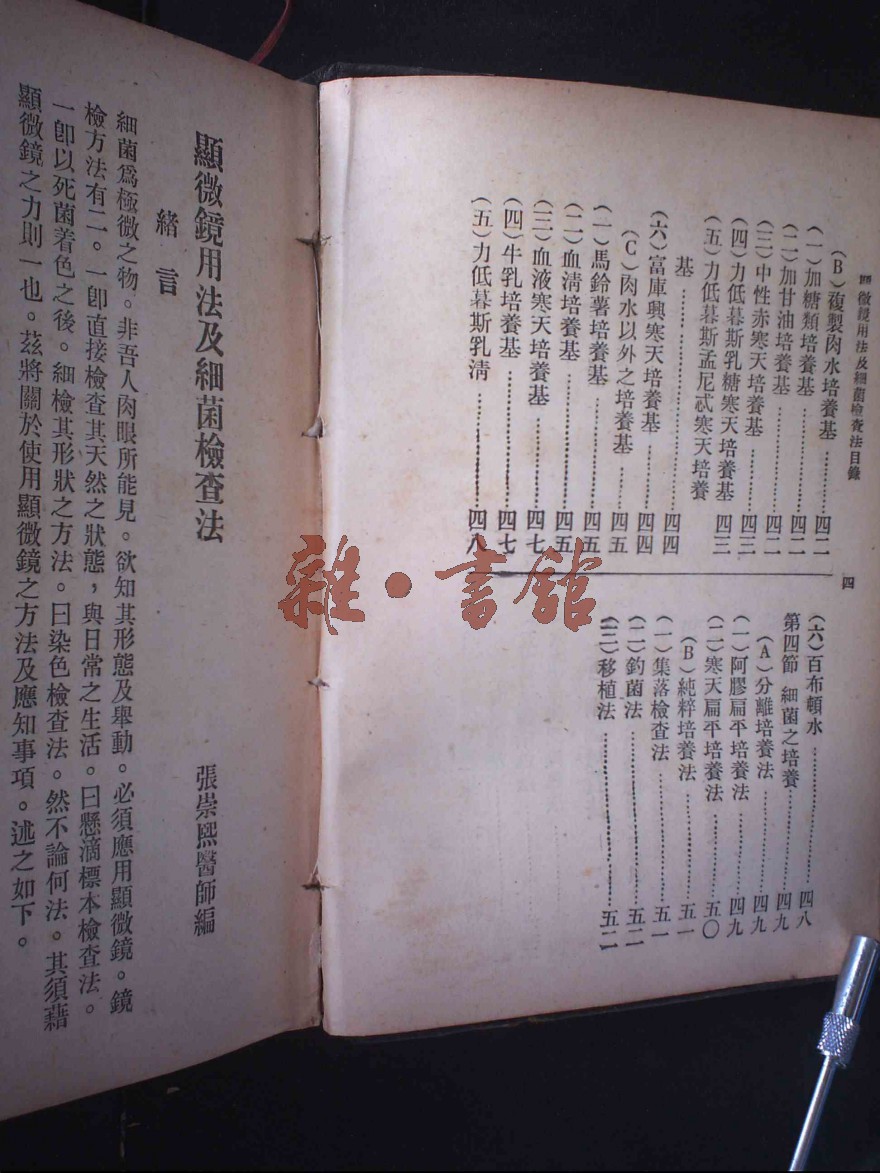 顯微鏡用法及細菌檢查法目錄
四
(B)複製肉水培養基……四二
(一)加糖類培養基……四二
(二)加甘油培養基……四二
(三)中性赤寒天培養基……四三
(四)力低暮斯乳糖寒天培養基……四三
(五)力低暮斯孟尼忒寒天培養
基……四四
(六)富庫興寒天培養基……四四
(C)肉水以外之培養基……四五
(一)馬鈴薯培養基……四五
(二)血清培養基……四五
(三)血液寒天培養基……四七
(四)牛乳培養基……四七
(五)力低暮斯乳清……四八
(六)百布頓水……四八
第四節 細菌之培養……四九
(A)分離培養法……四九
(一)阿膠扁平培養法……四九
(二)寒天扁平培養法……五〇
(B)純粹培養法……五一
(一)集落檢查法……五一
(二)釣菌法……五二
(三)移植法……五二
顯微鏡用法及細菌檢查法
張崇熙醫師編
緒言
細菌爲極微之物。非吾人肉眼所能見。欲知其形態及舉動。必須應用顯微鏡。鏡
檢方法有二。一卽直接檢查其天然之狀態,與日常之生活。曰懸滴標本檢查法。
一卽以死菌着色之後。細檢其形狀之方法。曰染色檢查法。然不論何法。其須藉
顯微鏡之力則一也。茲將關於使用顯微鏡之方法及應知事項。述之如下。
雜·書館